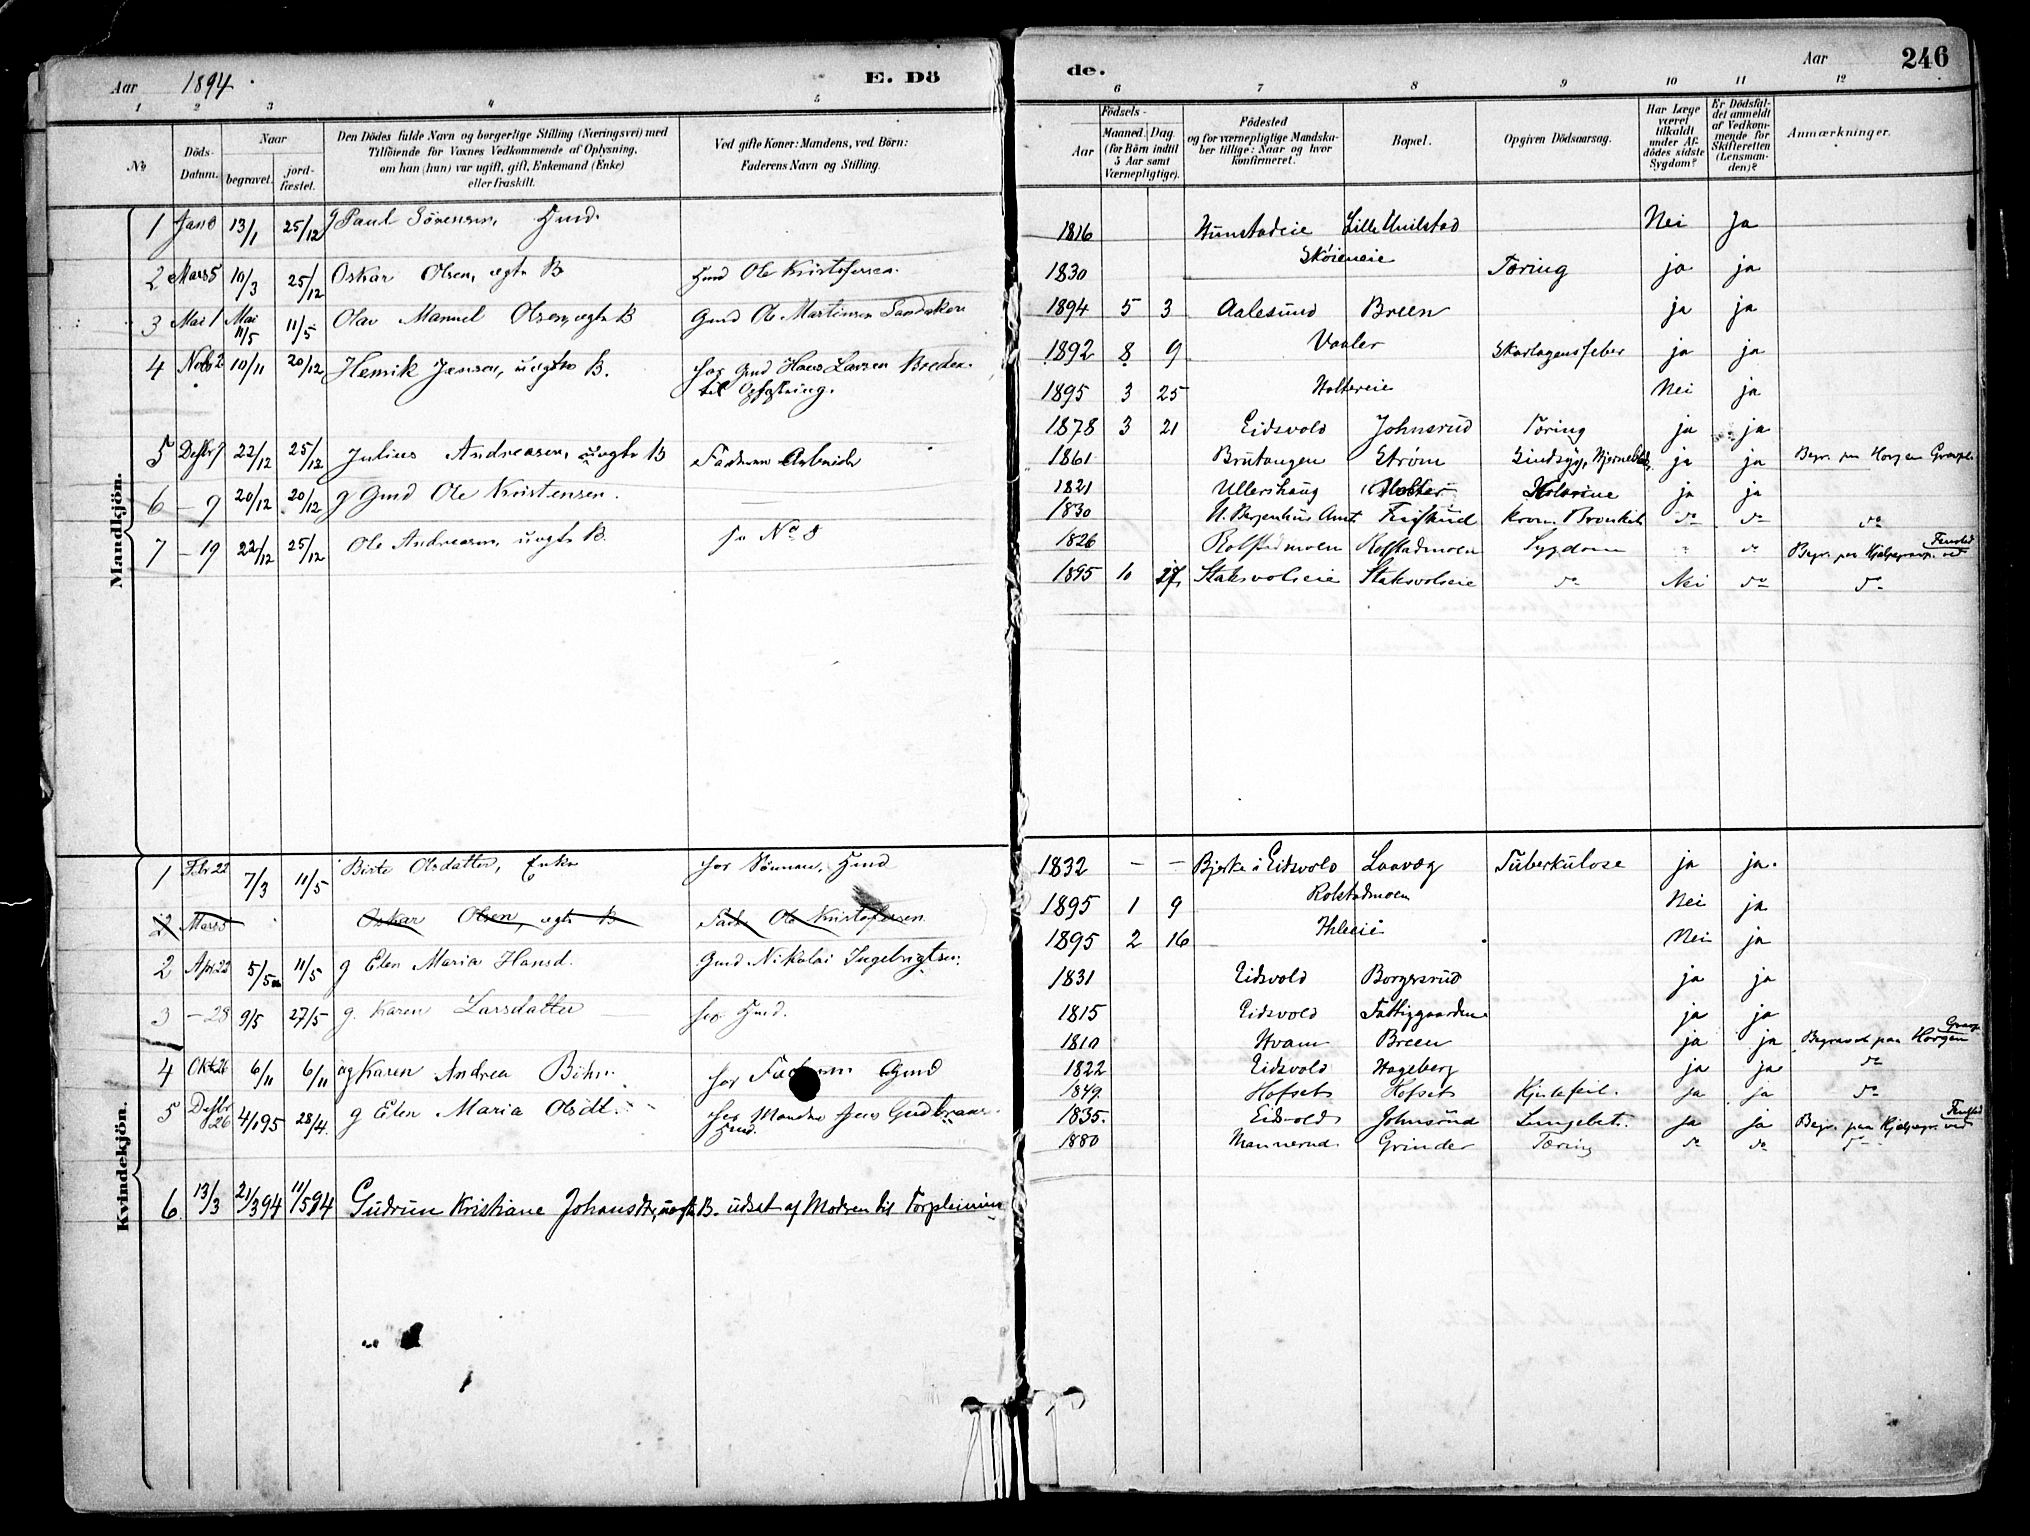 Aar 1894. E. Dö
1 2 3 4 5
No Döds-Datum. Naar begravet. jord-fæstet. Den Dödes fulde Navn og borgerlige Stilling (Næringsvei) med Tilföiende for Voxnes Vedkommende af Oplysning, om han (hun) var ugift, gift, Enkemand (Enke) eller fraskilt. Ved gifte Koner: Mandens, ved Börn: Faderens Navn og Stilling.
Mandkjön.
1 Jan 8 13/1 25/12 g Paul Sörensen, Gmd.
2 Mars 5 10/3 25/12 Oskar Olsen, ægte B Gmd Ole Kristofersen.
3 Mai 1 Mai 11/5 11/5 Olav Manuel Olsen, ægte B Gmd Ole Martinsen
4 Novb 2 10/11 20/12 Henrik Jensen, uægte B. hos Gmd Hans Larsen
til Opfostring.
5 Desbr 7 22/12 25/12 Julius Andreasen, uægte B
6 - 9 20/12 20/12 g Gmd Ole Kristensen.
7 - 19 22/12 25/12 Ole Andreasen, uægte B. se No 8
Kvindekjön.
1 Febr 22 7/3 11/5 Birte Olsdatter, Enke hos Sönnen, Gmd
2 Mars 5 Oskar Olsen, ægte B Fader Ole Kristofersen
2 Apr 22 5/5 11/5 g Elen Maria Hansd. Gmd Nikolai Ingebrigtsen
3 - 28 9/5 27/5 g. Karen Larsdatter
4 Oktb 26 6/11 6/11 ug Karen Andrea Bihn. hos Gmd
5 Desbr 26 4/1 95 28/4. g Elen Maria Olsdt. hos Manden Jens
Gmd.
6 13/3 21/3 94 11/5 94 Gudrun Kristiane Johansdtr, uægte B. udsat af Modren til Forpleining
de. Aar 246
6 7 8 9 10 11 12
Födsels- Aar Maaned. Dag (for Börn indtil 5 Aar samt Værnepligtige). Födested og for værnepligtige Mandska-ber tillige: Naar og hvor konfirmeret. Bopæl. Opgiven Dödsaarsag. Har Læge været tilkaldt under Af-dödes sidste Sygdom? Er Dödsfal-det anmeldt af Vedkom-mende for Skifteretten (Lensman-den)? Anmærkninger.
1816 Lille Nei Ja
1830 Skøieneie Tæring ja ja
1894 5 3 Aalesund Breen ja ja
1892 8 9 Vaaler Skarlagensfeber ja ja
1895 3 25 Holtereie Nei ja
1878 3 21 Eidsvold Johnsrud Tæring ja ja
1861 Brutangen Strøm ja ja Begr. paa Horgen Gravpl.
1821 Ullershaug ja ja
1830 N. Bergenhus Amt kron. Bronkit do do do
1826 Rolstadmoen Rolstadmoen Sygdom " do Begr. paa
1895 10 27 Staksvolseie Staksvolseie do Nei do do
1832 - - Bjerke i Eidsvold Laavæg Tuberkulose ja ja.
1895 1 9 Rolstadmoen Nei ja
1895 2 16 Nei ja
1831 Eidsvold Borgersrud ja ja
1815 Eidsvold Fattiggaarden ja ja
1810 Hvam Breen ja ja Begravet paa Horgen Gravpl.
1822 Eidsvold Hageberg ja ja do
1849. Hofset Hofset Hjertefeil. ja ja do
1835. Eidsvold Johnsrud Lungebet. ja ja Begr. paa
1880 Mannerud Grinder Tæring do do do